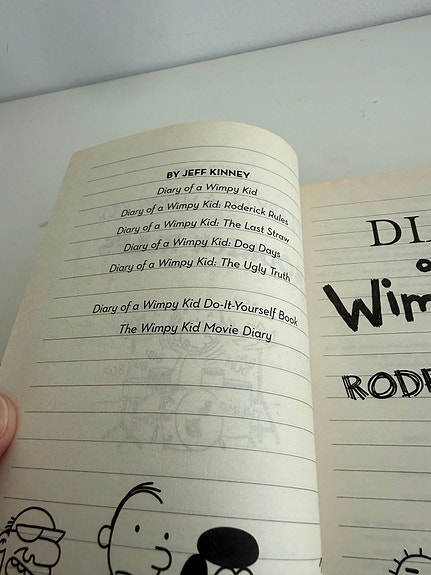 BY JEFF KINNEY
Diary of a Wimpy Kid
Diary of a Wimpy Kid: Roderick Rules
Diary of a Wimpy Kid: The Last Straw
Diary of a Wimpy Kid: Dog Days
Diary of a Wimpy Kid: The Ugly Truth
Diary of a Wimpy Kid Do-It-Yourself Book
The Wimpy Kid Movie Diary